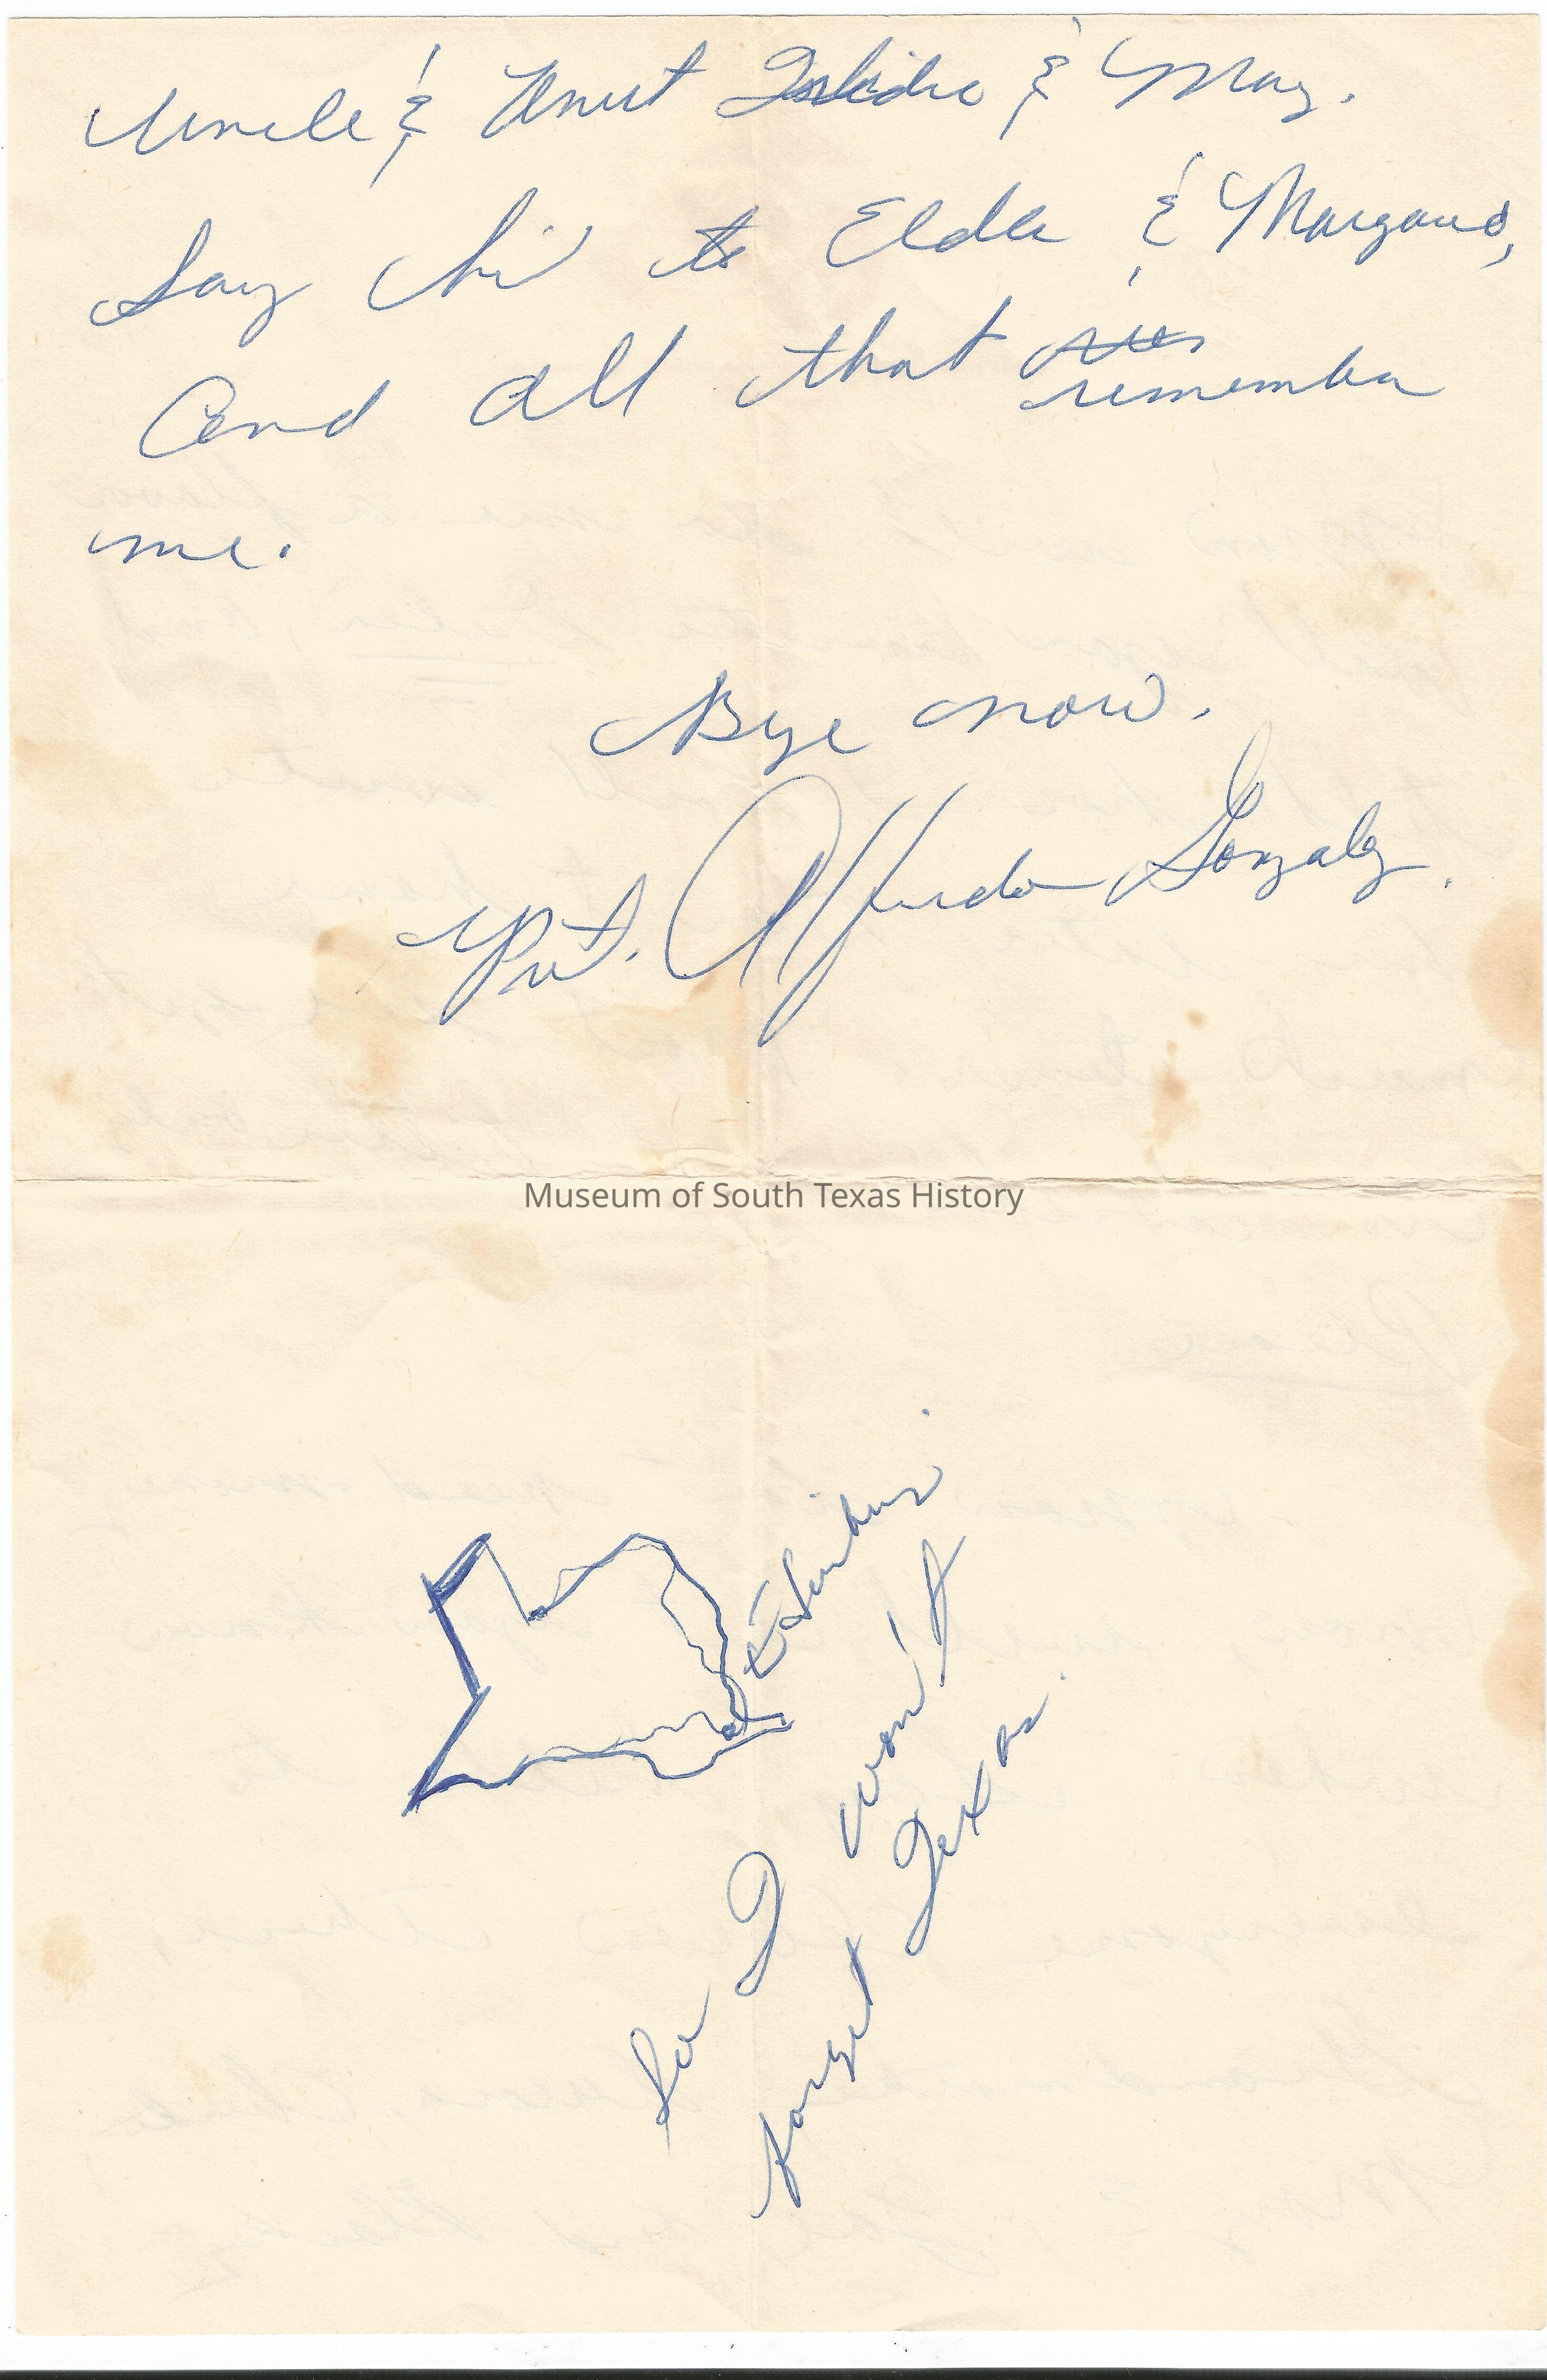 Uncle & Aunt Isidro & May.
Say hi to Elda & Margaro,
And all that
remember
me.
Bye now.
Pvt. Alfredo Gonzalez.
Museum of South Texas History
Edinburg.
So I won't
forget Texas.